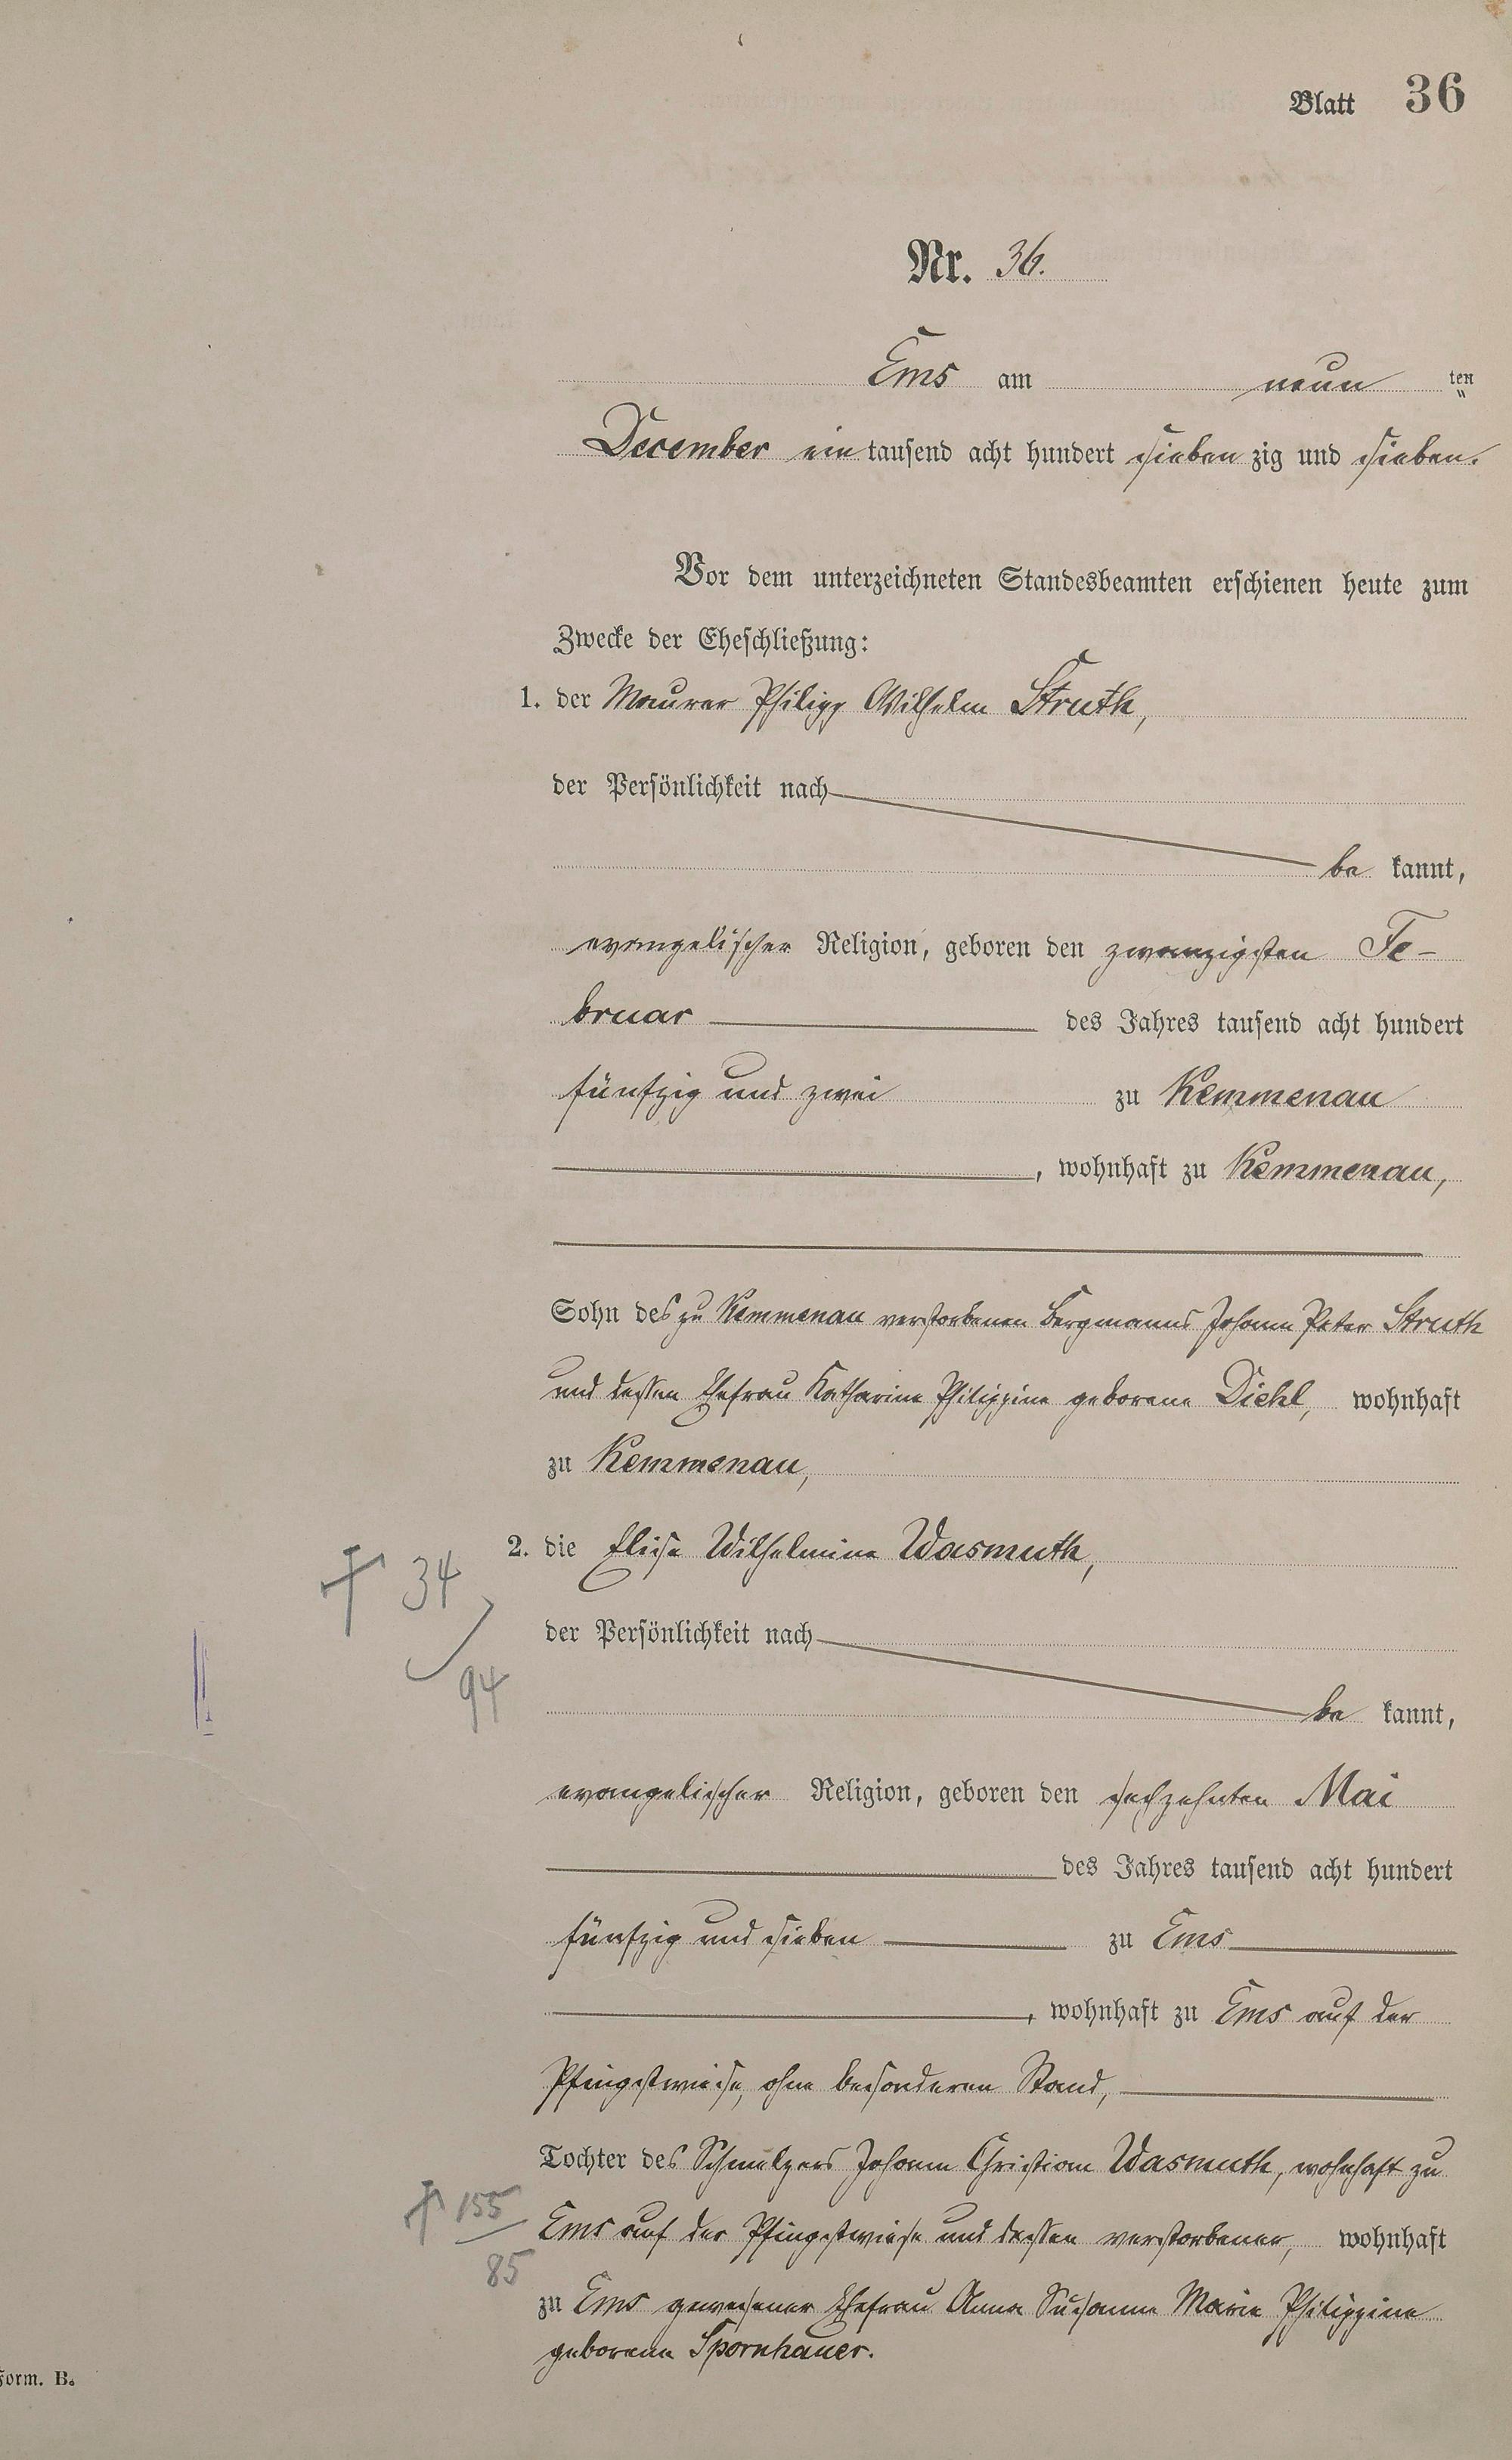 Blatt 36
Nr. 36.
Ems am neun ten
December ein tausend acht hundert sieben zig und sieben.
Vor dem unterzeichneten Standesbeamten erschienen heute zum
Zwecke der Eheschließung:
1. der Maurer Philipp Wilhelm Struth,
der Persönlichkeit nach
be kannt,
evangelischer Religion, geboren den zwanzigsten Fe-
bruar des Jahres tausend acht hundert
fünfzig und zwei zu Kemmenau
, wohnhaft zu Kemmenau,
Sohn des zu Kemmenau verstorbenen Bergmanns Johann Peter Struth
und dessen Ehefrau Katharine Philippine geborene Diehl, wohnhaft
zu Kemmenau,
2. die Elise Wilhelmine Wasmuth,
† 34
94
der Persönlichkeit nach
be kannt,
evangelischer Religion, geboren den sechzehnten Mai
des Jahres tausend acht hundert
fünfzig und sieben zu Ems
, wohnhaft zu Ems auf der
Pfingstwiese, ohne besonderen Stand,
Tochter des Schmelzers Johann Christian Wasmuth, wohnhaft zu
† 155
85
Ems auf der Pfingstwiese und dessen verstorbener, wohnhaft
zu Ems gewesener Ehefrau Anna Susanne Marie Philippine
geborene Spornhauer.
Form. B.